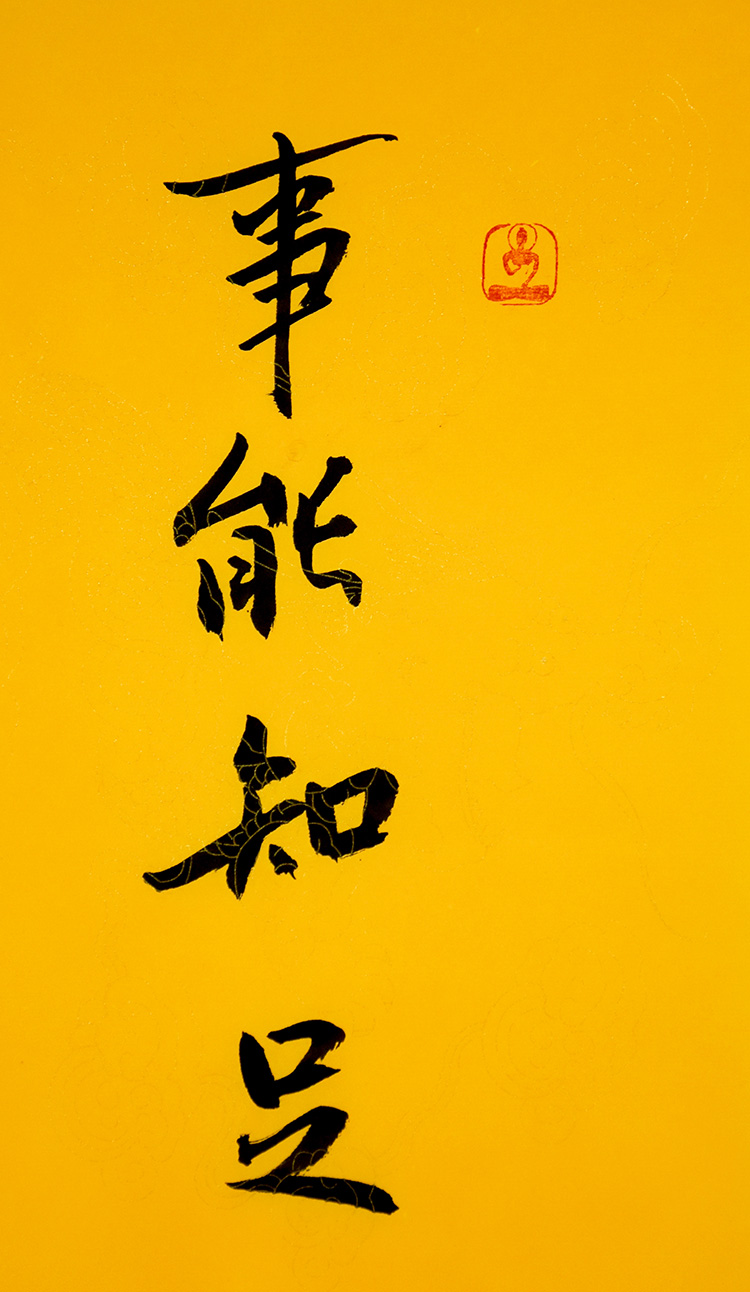 事能知足